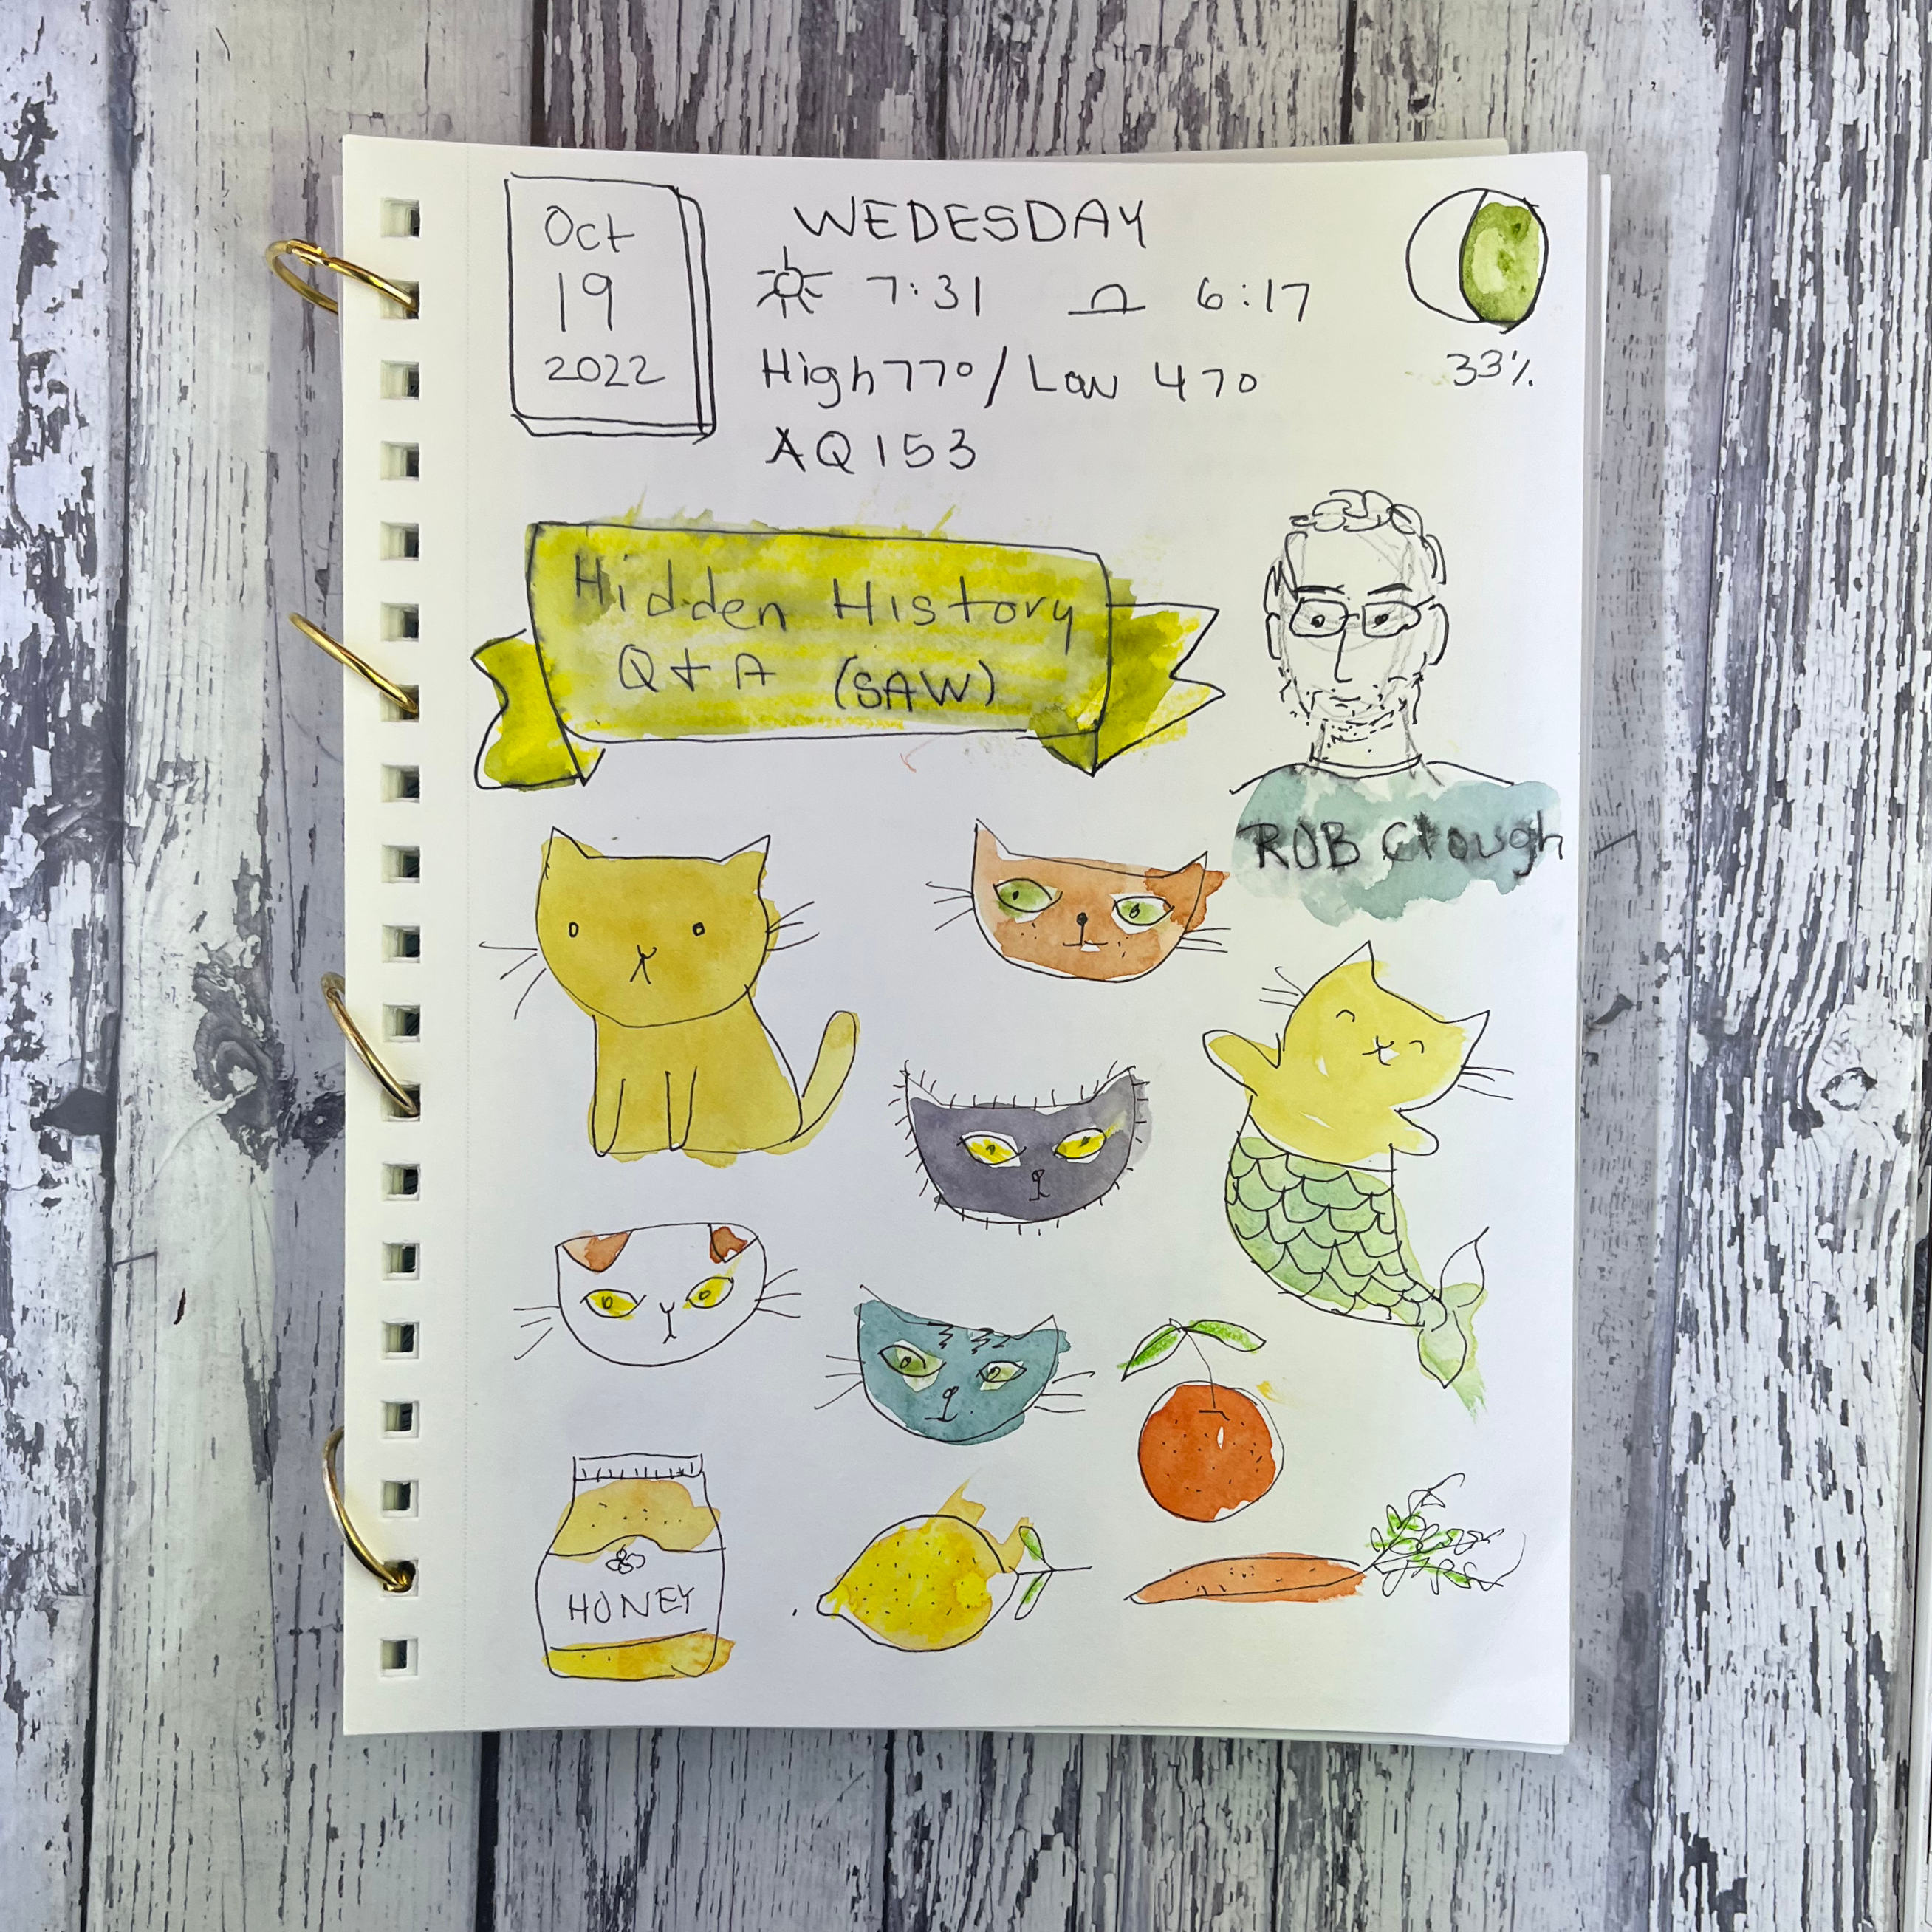 Oct
19
2022
WEDESDAY
7:31 6:17
High 77° / Low 47°
AQ 153
33%
Hidden History
Q + A (SAW)
ROB Clough
HONEY